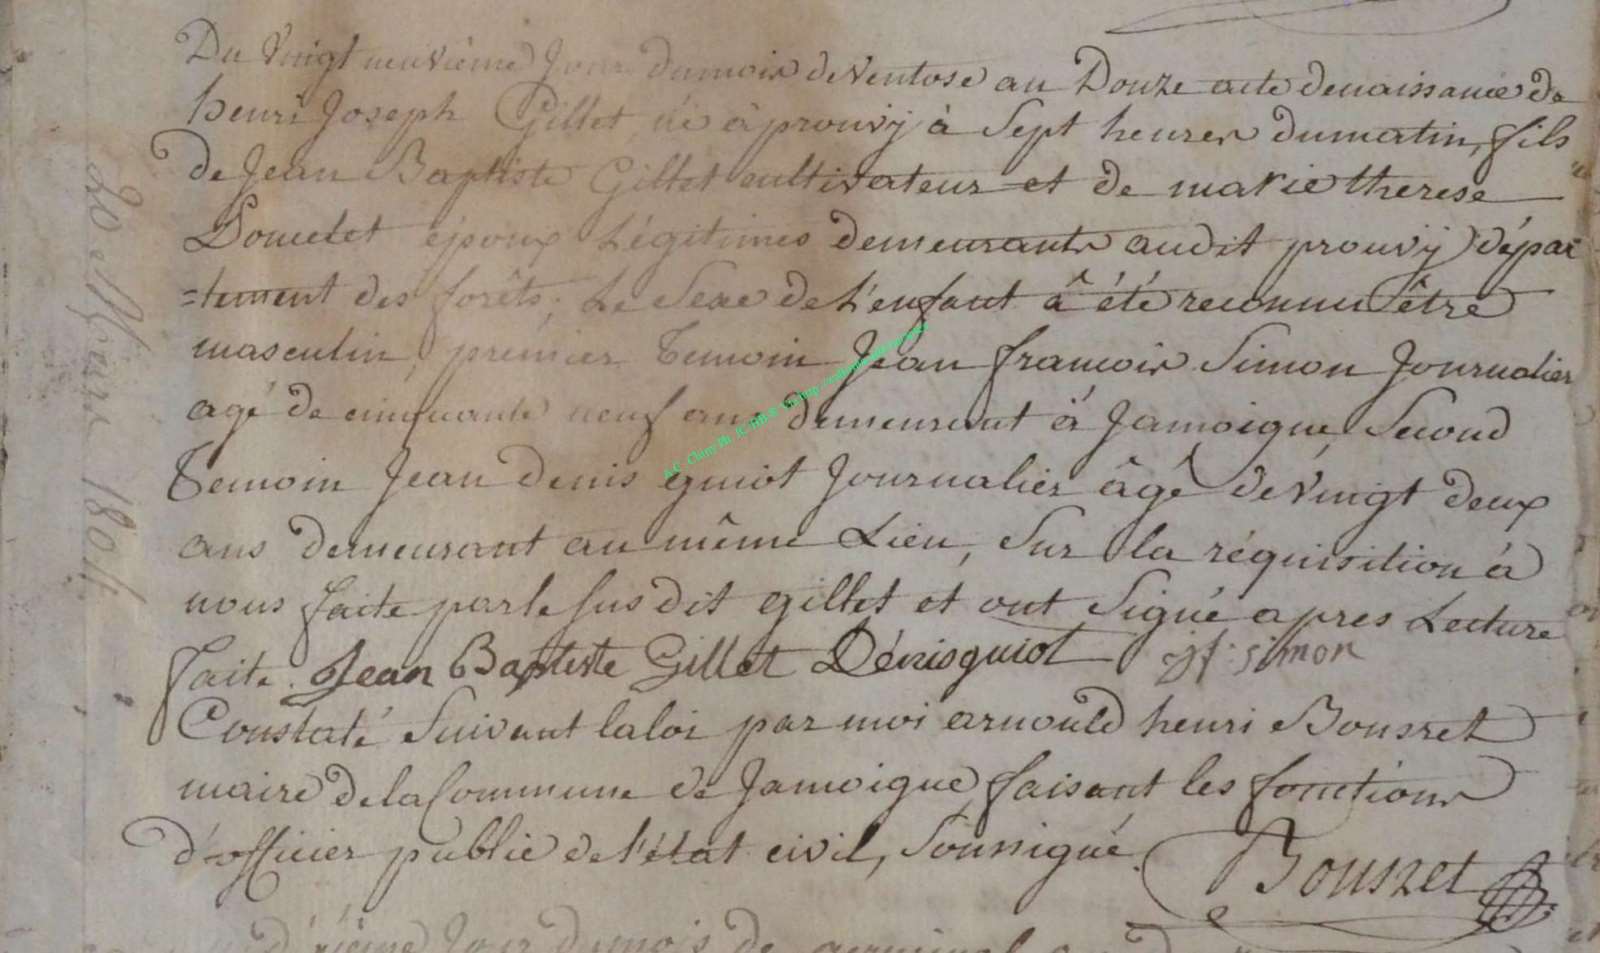 Du Vingt neuvième Jour dumois deVentose an Douze acte denaissance de
henri Joseph Gillet né à prouvÿ à Sept heures dumatin, fils
de Jean Baptiste Gillet cultivateur et de marie therese
époux Légitimes demeurants audit prouvÿ dépar
=tement des forêts, Le Sexe deL'enfant â été reconnu être
masculin, premier Temoin Jean francois Simon Journalier
agé de cinquante neuf ans demeurant à Jamoigne, Second
Temoin Jean denis guiot Journalier âgé deVingt deux
ans demeurant au même Lieu, Sur la réquisition à
nous faite parle susdit gillet et ont Signé apres Lecture
faite. Jean Baptiste Gillet Dénisguiot jf simon
Constaté Suivant laloi par moi arnould henri Bousret
maire delaCommune de Jamoigne, faisant les fonctions
d'officier public del'état civil, Soussigné.
Bousret
20 Mars 1804